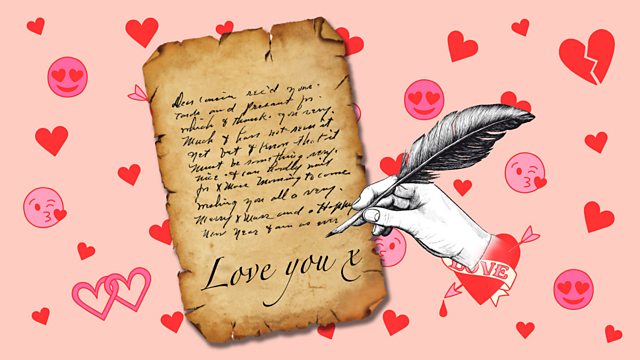 Dear Cousin rec'd your
and Present for
which I thank you very
Much I have not seen it
yet but I know that it
Must be something very
nice I can hardly wait
for X Mas Morning to come
making you all a very
Merry X Mas and a Happy
New Year I am as ever
Love you x
LOVE